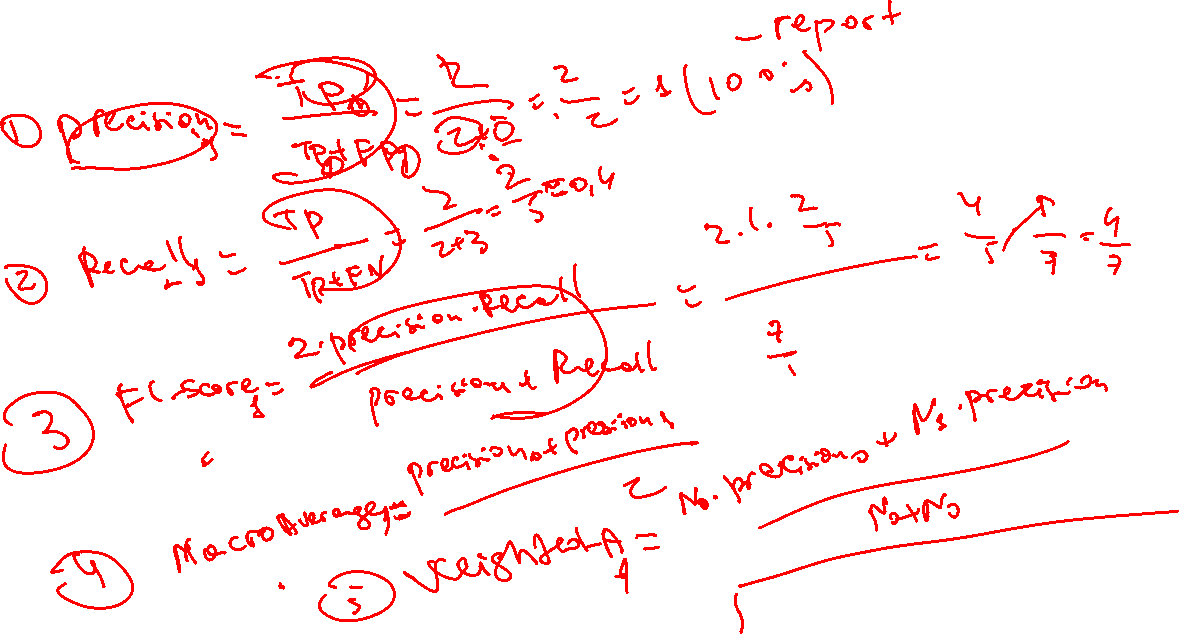 - report
① precision₁ = TP / TP + FP = 2 / 2+0 = 2/2 = 1 (100%)
② Recall₁ = TP / TP+FN = 2 / 2+3 = 2/5 = 0,4
③ F1-score₁ = 2·precision·Recall / precision + Recall = 2·1·2/5 / 7/5 = 4/5 · 5/7 = 4/7
④ Macro Average = precision₀ + precision₁ / 2
⑤ Weighted-A = N₀·precision₀ + N₁·precision / N₀+N₁